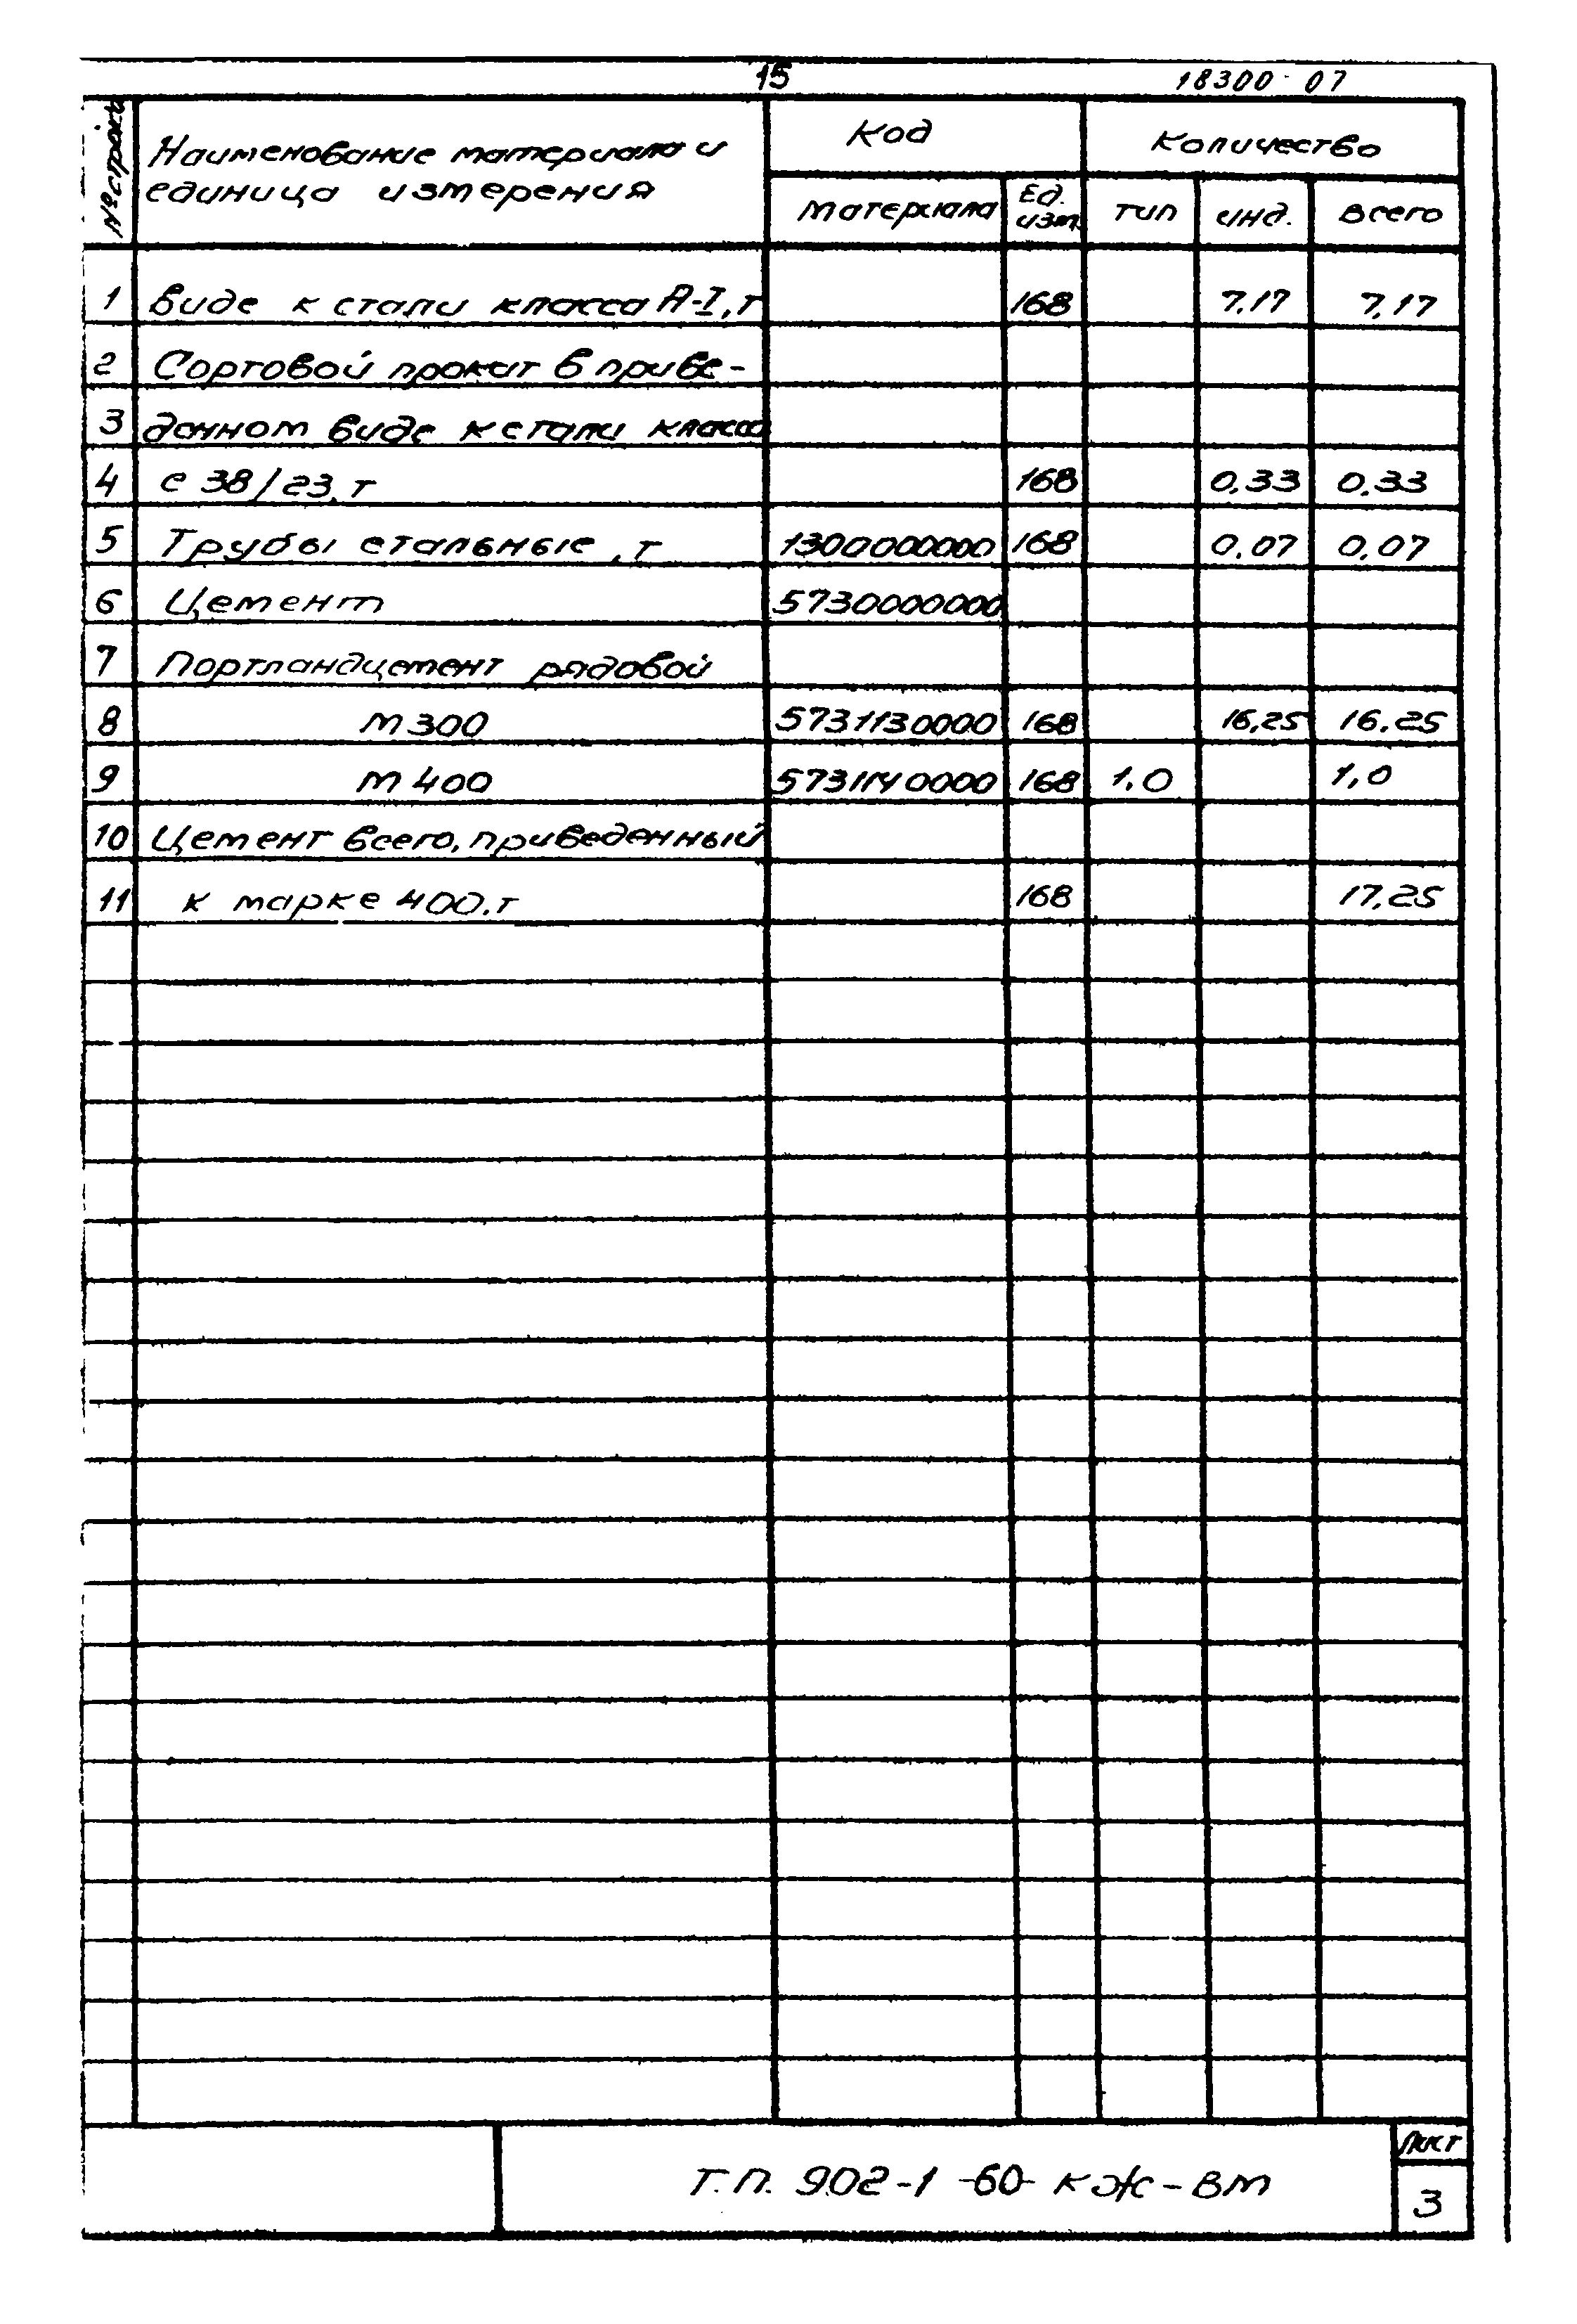 15
18300-07
№ строки
Наименование материала и
единица измерения
Код
Количество
материала
Ед.
изм.
тип
инд.
всего
1 виде к стали класса А-I, т 168 7,17 7,17
2 Сортовой прокат в приве-
3 данном виде к стали класса
4 с 38/23, т 168 0,33 0,33
5 Трубы стальные, т 1300000000 168 0,07 0,07
6 Цемент 5730000000
7 Портландцемент рядовой
8 м 300 5731130000 168 16,25 16,25
9 м 400 5731140000 168 1,0 1,0
10 Цемент всего, приведенный
11 к марке 400, т 168 17,25
Т.П. 902-1-60-КЖ-ВМ
Лист
3